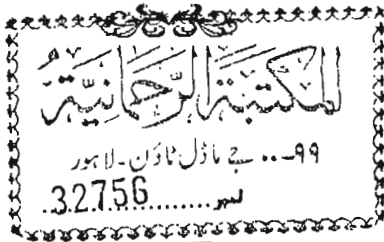 المكتبة الرحمانية
۹۹ - .. جے ماڈل ٹاؤن - لاہور
نمبر .......... 32756